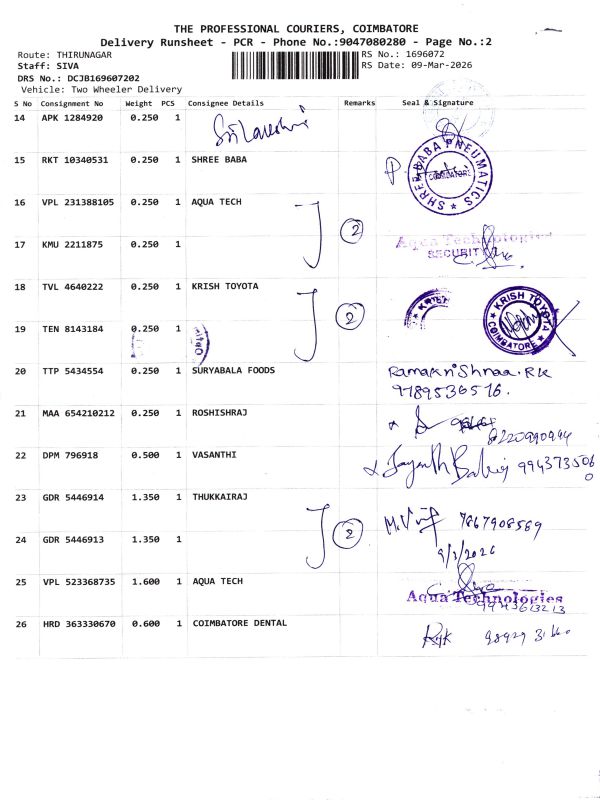 THE PROFESSIONAL COURIERS, COIMBATORE
Delivery Runsheet - PCR - Phone No.:9047080280 - Page No.:2
Route: THIRUNAGAR
RS No.: 1696072
Staff: SIVA
RS Date: 09-Mar-2026
DRS No.: DCJB169607202
Vehicle: Two Wheeler Delivery
S No Consignment No Weight PCS Consignee Details Remarks Seal & Signature
14 APK 1284920 0.250 1
15 RKT 10340531 0.250 1 SHREE BABA
SHREE BABA PNEUMATICS
COIMBATORE
16 VPL 231388105 0.250 1 AQUA TECH
2
17 KMU 2211875 0.250 1
Aqua Technologies
SECURITY
18 TVL 4640222 0.250 1 KRISH TOYOTA
2
KRISH
KRISH TOYOTA
COIMBATORE
19 TEN 8143184 0.250 1
20 TTP 5434554 0.250 1 SURYABALA FOODS Ramakrishnaa.RK
9789536516.
21 MAA 654210212 0.250 1 ROSHISHRAJ
8220990994
22 DPM 796918 0.500 1 VASANTHI
23 GDR 5446914 1.350 1 THUKKAIRAJ
2 7867908569
24 GDR 5446913 1.350 1
9/3/2026
25 VPL 523368735 1.600 1 AQUA TECH
Aqua Technologies
26 HRD 363330670 0.600 1 COIMBATORE DENTAL